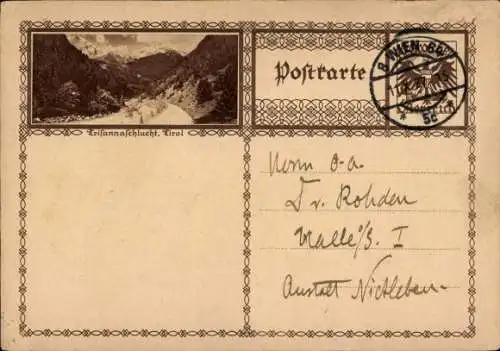 Postkarte
WIEN
Trisannaschlucht, Tirol
Herrn O.A.
Dr. Rohden
Halle a/S. I
Anstalt Nietleben